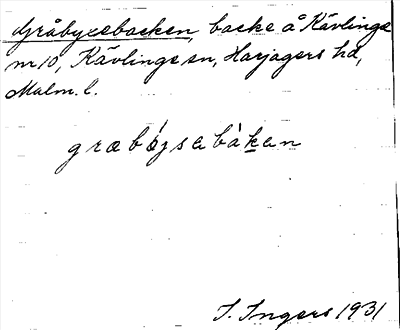 Gråbyesebacken, backe å Kävlinge
nr 10, Kävlinge sn, Harjagers hd,
Malm. l.
græbøjsabàkan
I. Ingers 1931